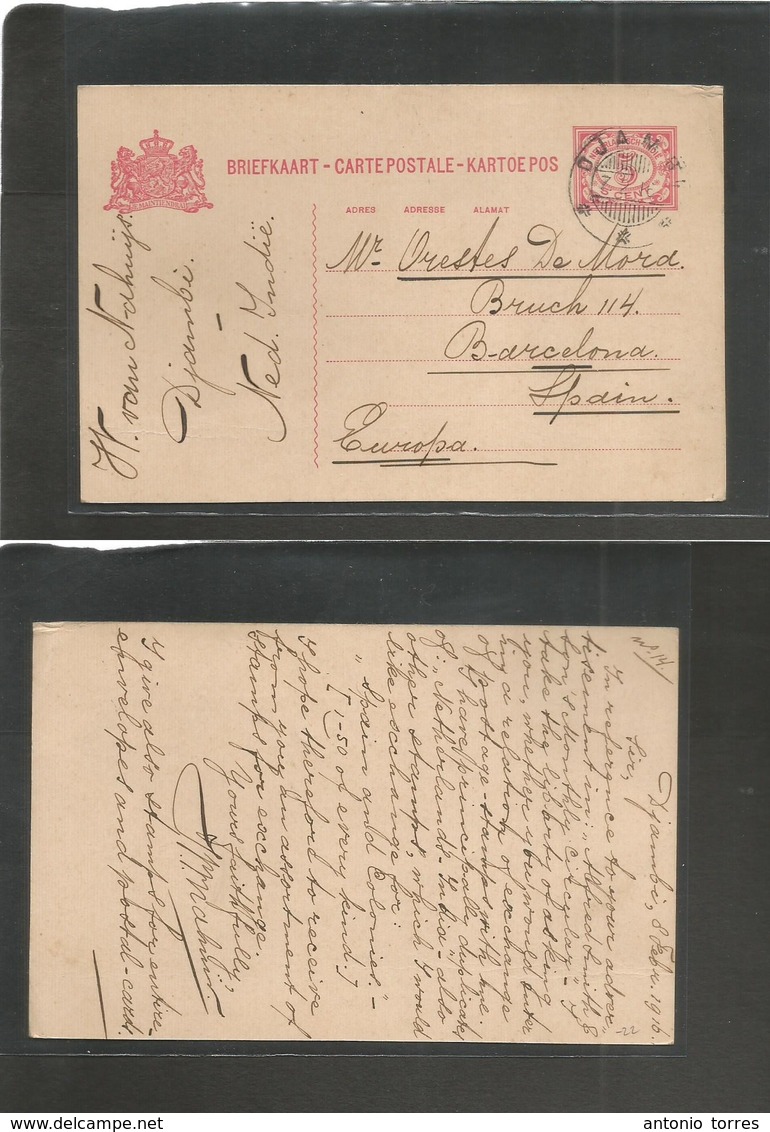 BRIEFKAART - CARTE POSTALE - KARTOE POS
ADRES ADRESSE ALAMAT
JE MAINTIENDRAI
DJAMBI
5 CENT
Mr. Orestes De Mora.
Bruch 114.
Barcelona.
Spain.
Europa.
H. van Nahuijs.
Djambi.
Ned. Indië.
No. 14/
Djambi, 8 Febr. 1916.
Sir,
In reference to your adver-
tisement in "Alfred Smith &
Son's Monthly circular" I
take the liberty of asking
you, whether you would enter
in a relation of exchange
of postage-stamps with me.
I have principally duplicates
of "Netherlands-India" also
other stamps, which I would
like exchange for:
"Spain and Colonies." -
[1-50 of every kind.]
I hope therefore to receive
from you an assortment of
stamps for exchange.
Yours faithfully,
I give also stamps for entire-
envelopes and postal-cards.
-22
antonio torres